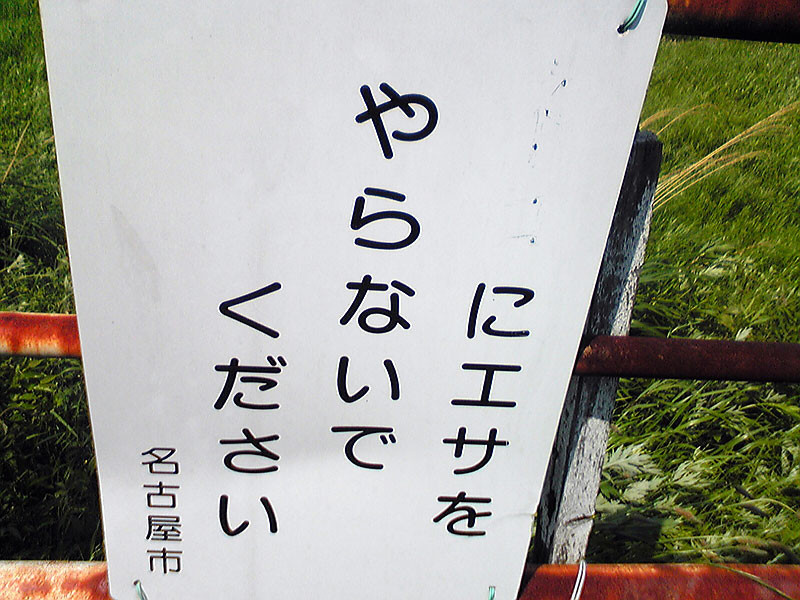 にエサを
やらないで
ください
名古屋市